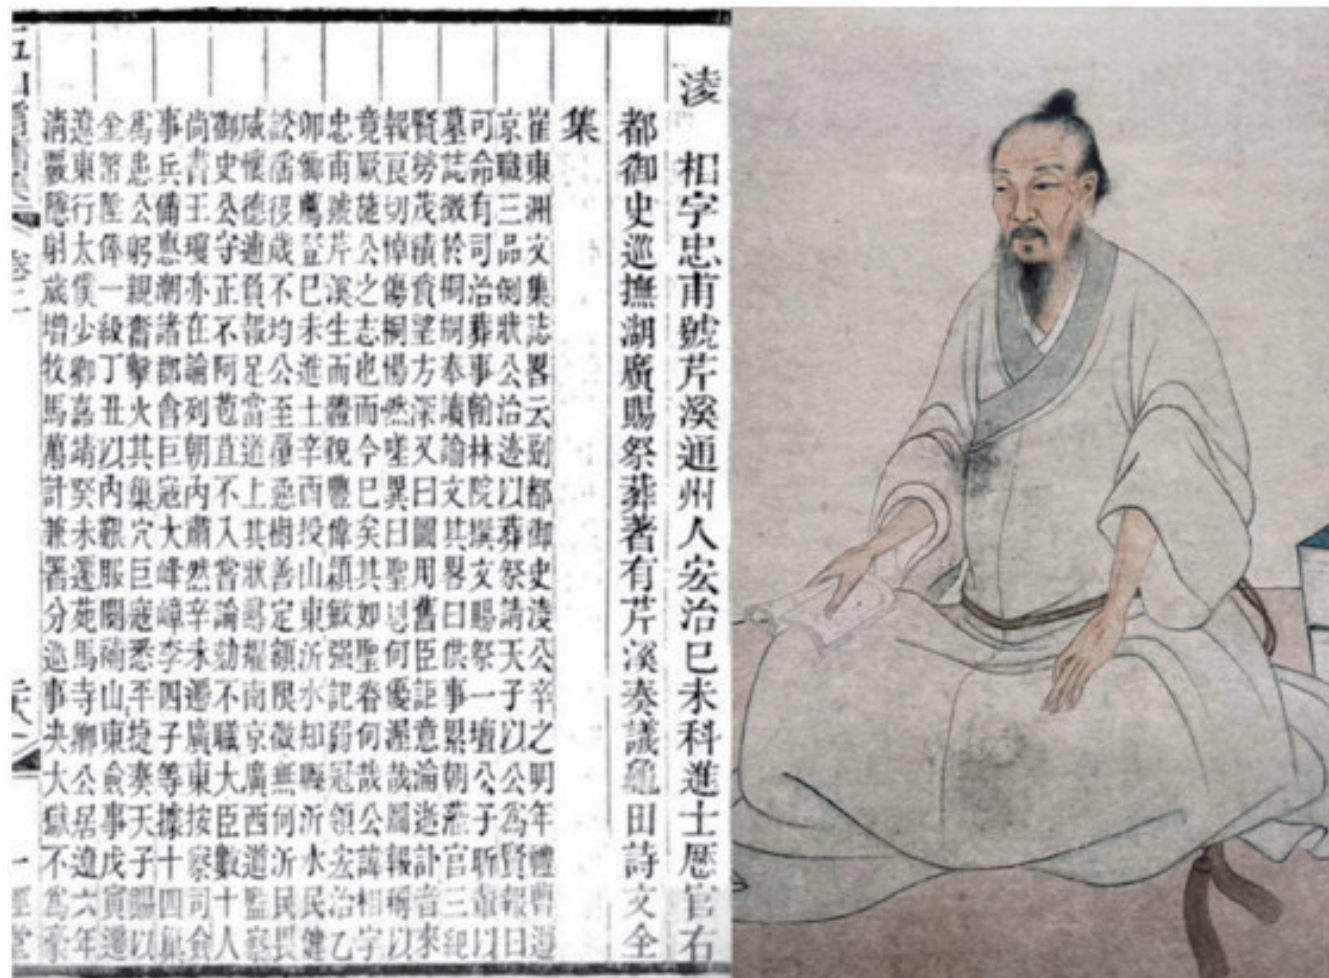 淩 相字忠甫號芹溪通州人宏治己未科進士歷官右
都御史巡撫湖廣賜祭葬著有芹溪奏議龜田詩文全
集
崔東洲文集誌畧云副都御史淩公卒之明年禮曹遵
京職三品例狀公治迹以葬祭請天子以公爲賢報曰
可命有司治葬事翰林院撰文賜祭一壇公子昕輩以
墓誌徵於桐桐奉讀諭文其畧曰供事累朝蒞官三紀
賢勞茂績資望方深又曰圖用舊臣詎意淪逝訃音來
報良切悼傷桐惕然嗟異曰聖恩何優渥哉圖報稱以
竟厥施公之志也而今已矣其如聖眷何哉公諱相字
忠甫號芹溪生而體貌豐偉穎敏强記弱冠領宏治乙
卯鄉薦登已未進士辛酉投山東沂水知縣沂水民健
訟徭役歲不均公至惡樹善定額限徵無何沂民畏
威懷德逋負報足當道上其狀尋擢南京廣西道監察
御史公守正不阿苞苴不入嘗論劾不職大臣數十人
尚書王瓊亦在論列朝內肅然辛未遷廣東按察司僉
事兵備惠潮諸郡會巨寇大峰嶂李四子等據十四
爲患公躬親奮擊火其巢穴巨寇悉平捷奏天子賜以
金幣陞俸一級丁丑以內艱服闋補山東僉事戊寅遷
遼東行太僕少卿嘉靖癸未遷苑馬寺卿公居遼六年
清覈隱射歲增牧馬萬計兼署分巡事决大獄不爲豪
五山耆舊集
卷二